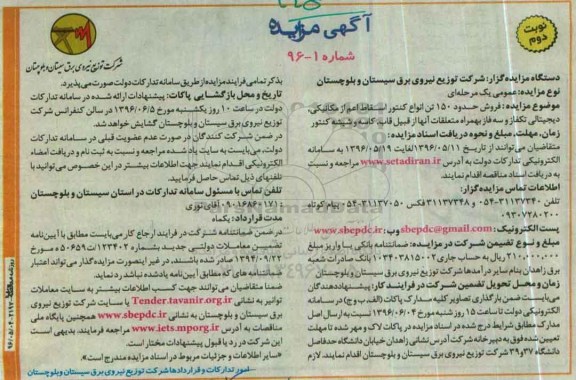 نوبت دوم
آگهی مزایده
شماره ۱-۹۶
شرکت توزیع نیروی برق سیستان و بلوچستان
دستگاه مزایده گزار: شرکت توزیع نیروی برق سیستان و بلوچستان
نوع مزایده: عمومی یک مرحله‌ای
موضوع مزایده: فروش حدود ۱۵۰ تن انواع کنتور اسقاط اعم از مکانیکی،
دیجیتالی تکفاز و سه فاز بهمراه متعلقات آنها از قبیل قاب، کاسه و شیشه کنتور
زمان، مهلت، مبلغ و نحوه دریافت اسناد مزایده:
متقاضیان می‌توانند از تاریخ ۱۳۹۶/۰۵/۱۱ لغایت ۱۳۹۶/۰۵/۱۹ به سامانه
الکترونیکی تدارکات دولت به آدرس www.setadiran.ir مراجعه و نسبت
به دریافت اسناد مناقصه اقدام نمایند.
اطلاعات تماس مزایده گزار:
تلفن ۳۱۱۳۷۳۴۶-۰۵۴ و ۳۱۱۳۷۳۴۸ فکس ۳۱۱۳۷۰۵۰-۰۵۴ پیام کوتاه
۰۹۳۰۷۲۸۰۲۰۰
پست الکترونیک: sbepdc@gmail.com وب: www.sbepdc.ir
مبلغ و نوع تضمین شرکت در مزایده: ضمانتنامه بانکی یا واریز مبلغ
۲۱۰,۰۰۰,۰۰۰ ریال به حساب جاری ۱۰۳۴۰۳۸۱۵۰۰۲ بانک صادرات شعبه
برق زاهدان بنام سایر درآمدها شرکت توزیع نیروی برق سیستان و بلوچستان
زمان و محل تحویل تضمین شرکت در فرایند کار: پیشنهاددهندگان
می‌بایست ضمن بارگذاری تصاویر کلیه مدارک پاکات (الف، ب و ج) در سامانه
الکترونیکی دولت تا ساعت ۱۵ روز شنبه مورخ ۱۳۹۶/۰۶/۰۴ نسبت به ارسال اصل
مدارک مطابق شرایط درج شده در اسناد مزایده در پاکات لاک و مهر شده تا مهلت
تعیین شده فوق به دبیرخانه شرکت آدرس نشانی زاهدان خیابان دانشگاه حدفاصل
دانشگاه ۳۷ و ۳۹ شرکت توزیع نیروی برق سیستان و بلوچستان اقدام نمایند. لازم
بذکر تمامی فرایند مزایده از طریق سامانه تدارکات دولت صورت می‌پذیرد.
تاریخ و محل بازگشایی پاکات: پیشنهادات ارائه شده در سامانه تدارکات
دولت در ساعت ۱۰ روز یکشنبه مورخ ۱۳۹۶/۰۶/۵ در سالن کنفرانس شرکت
توزیع نیروی برق سیستان و بلوچستان گشایش خواهد شد.
در ضمن شرکت کنندگان در صورت عدم عضویت قبلی در سامانه تدارکات
دولت، می‌بایست به سایت یاد شده مراجعه و نسبت به ثبت نام و دریافت امضاء
الکترونیکی اقدام نمایند جهت اطلاعات بیشتر در این خصوص می‌توانید با
تلفنهای ذیل تماس حاصل فرمایید.
تلفن تماس با مسئول سامانه تدارکات در استان سیستان و بلوچستان
۰۹۰۱۶۸۶۰۱۷۱: آقای نوری
مدت قرارداد: یکماه
در ضمن ضمانتنامه شرکت در فرایند ارجاع کار می‌بایست مطابق با آیین‌نامه
تضمین معاملات دولتی جدید بشماره ۱۲۳۴۰۲/ت ۵۰۶۵۹ ه مورخ
۱۳۹۴/۰۹/۲۲ صادر شده باشند، در غیر اینصورت مزایده گذار می‌تواند اعتبار
ضمانتنامه های که مطابق آیین‌نامه یاد شده نباشد رد نماید.
ضمنا متقاضیان می توانند جهت کسب اطلاعات بیشتر به سایت معاملات
توانیر به نشانی Tender.tavanir.org.ir یا سایت شرکت توزیع نیروی
برق سیستان و بلوچستان به نشانی www.sbepdc.ir همچنین پایگاه ملی
مناقصات به آدرس www.iets.mporg.ir مراجعه فرمایند. بدیهی است
این شرکت در رد یا قبول پیشنهادات مختار است.
«سایر اطلاعات و جزئیات مربوط در اسناد مزایده مندرج است».
امور تدارکات و قراردادها شرکت توزیع نیروی برق سیستان و بلوچستان